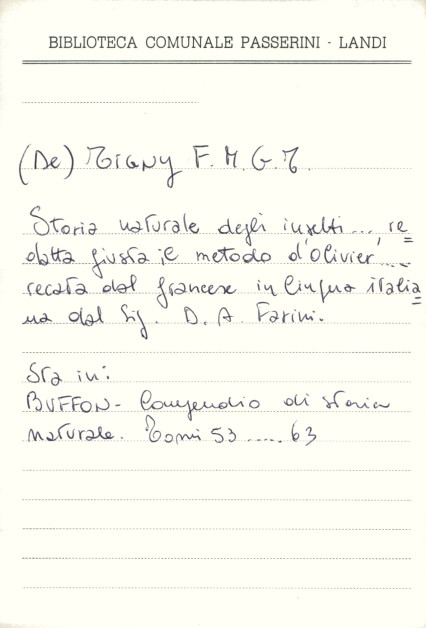 BIBLIOTECA COMUNALE PASSERINI - LANDI
(De) Tigny F. M. G. T.
Storia naturale degli insetti..., re=
datta giusta il metodo d'Olivier...
recata dal francese in lingua italia=
na dal Sig. D. A. Farini.
Sta in:
BUFFON - Compendio di storia
naturale. Tomi 53 ..... 63